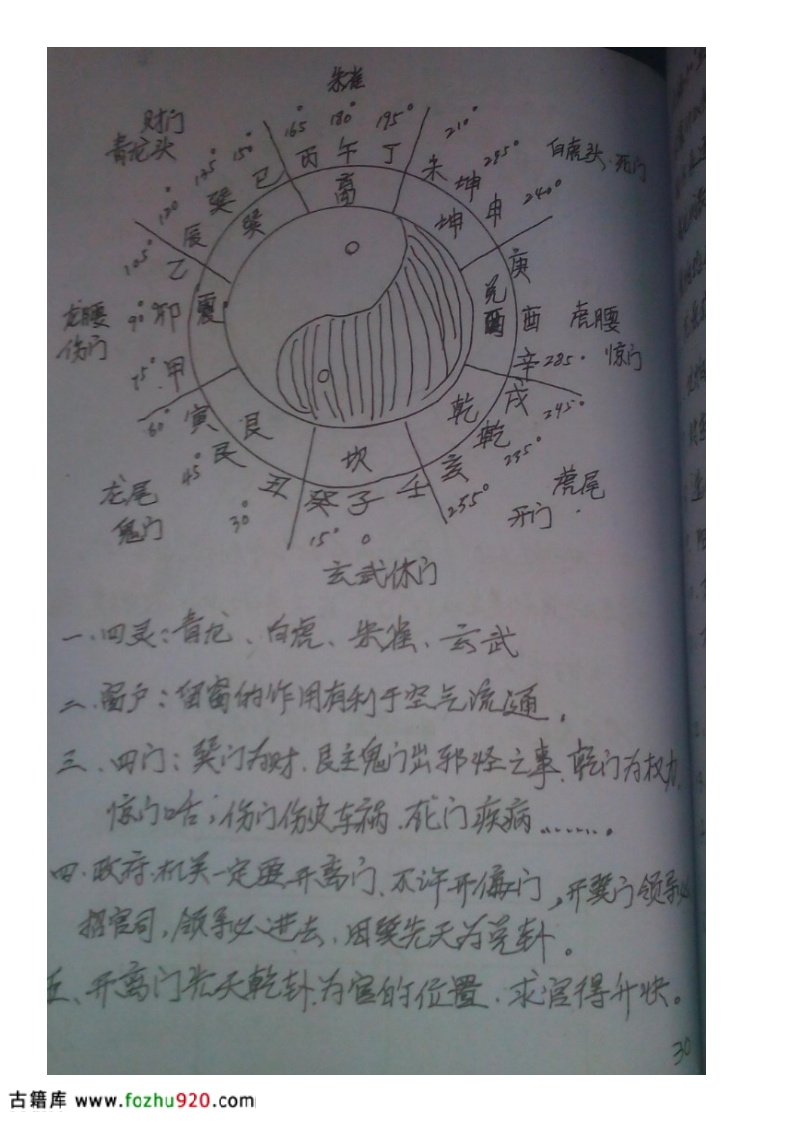 朱雀
165° 180° 195°
财门
青龙头
150°
135°
120°
105°
210°
225°
白虎头、死门
240°
巳 丙 午 丁 未 坤 申
辰 巽 巽 离 坤
乙 庚
龙腰
伤门
90° 卯 震 兑 酉 酉 虎腰
75° 甲 辛 285° 惊门
60° 寅 艮 乾 戌 245°
45° 艮 坎 乾 235°
龙尾
鬼门
30° 丑 癸 子 壬 亥 255°
虎尾
开门
15° 0
玄武休门
一、四灵:青龙、白虎、朱雀、玄武
二、窗户:留窗的作用有利于空气流通。
三、四门:巽门为财、艮主鬼门出邪怪之事、乾门为权力
惊门口舌;伤门伤灾车祸、死门疾病.......。
四、政府机关一定要开离门、不许开偏门,开巽门领导必
招官司,领导必进去,因巽先天为兑卦。
五、开离门先天乾卦、为官的位置、求官得升快。
30
古籍库 www.fozhu920.com